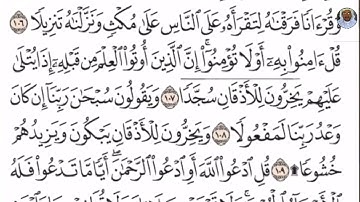 وَقُرْءَانًا فَرَقْنَٰهُ لِتَقْرَأَهُۥ عَلَى ٱلنَّاسِ عَلَىٰ مُكْثٍ وَنَزَّلْنَٰهُ تَنزِيلًا ١٠٦
قُلْ ءَامِنُوا۟ بِهِۦٓ أَوْ لَا تُؤْمِنُوٓا۟ ۚ إِنَّ ٱلَّذِينَ أُوتُوا۟ ٱلْعِلْمَ مِن قَبْلِهِۦٓ إِذَا يُتْلَىٰ
عَلَيْهِمْ يَخِرُّونَ لِلْأَذْقَانِ سُجَّدًا ١٠٧ وَيَقُولُونَ سُبْحَٰنَ رَبِّنَآ إِن كَانَ
وَعْدُ رَبِّنَا لَمَفْعُولًا ١٠٨ وَيَخِرُّونَ لِلْأَذْقَانِ يَبْكُونَ وَيَزِيدُهُمْ
خُشُوعًا ۩ ١٠٩ قُلِ ٱدْعُوا۟ ٱللَّهَ أَوِ ٱدْعُوا۟ ٱلرَّحْمَٰنَ ۖ أَيًّا مَّا تَدْعُوا۟ فَلَهُ